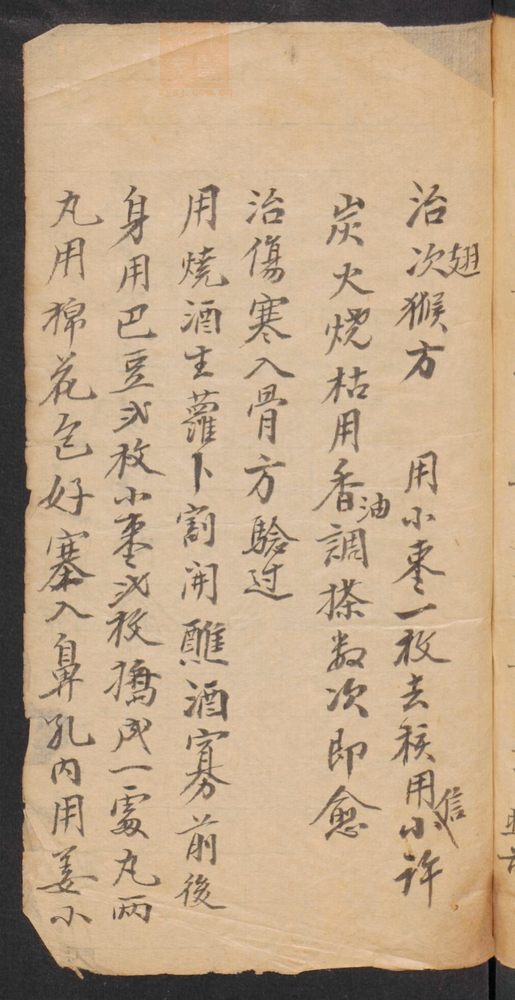 治次翅猴方 用小枣一枚去核用信小许
炭火烧枯用香油調搽数次即愈
治傷寒入骨方驗过
用燒酒生蘿卜割開醮酒寡前後
身用巴豆弍枚小枣弍枚搗成一處丸两
丸用棉花包好塞入鼻孔内用姜小